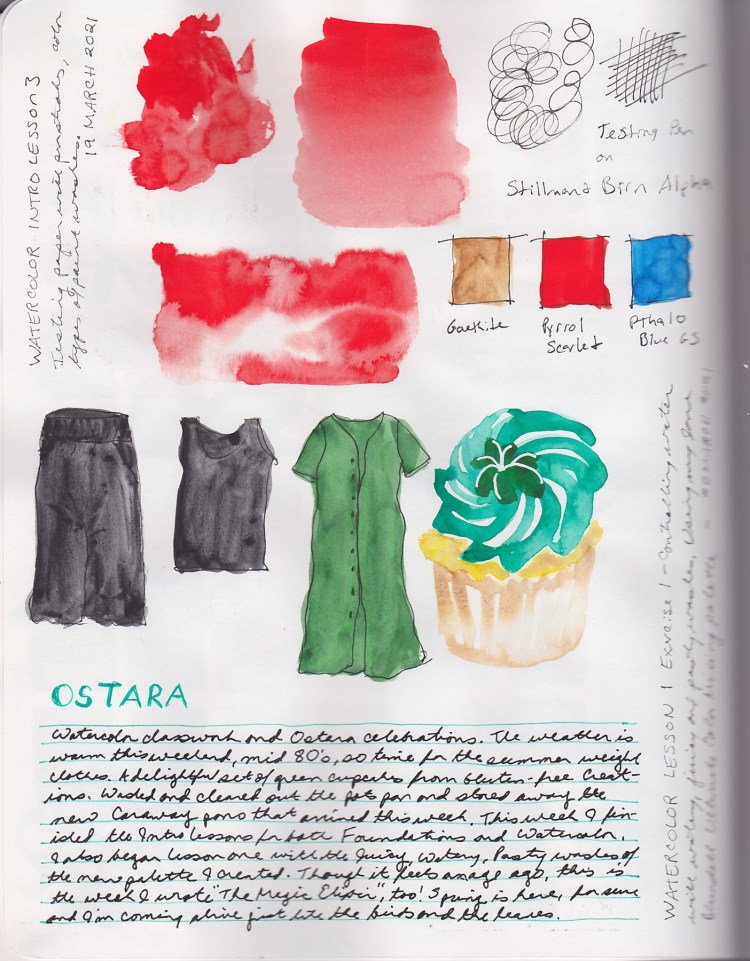 WATERCOLOR INTRO LESSON 3
Testing paper with pastoral, color
types of paint washes.
19 MARCH 2021
Testing Pen
on
Stillmand Birn Alpha
Goethite
Pyrrol
Scarlet
Pthalo
Blue GS
WATERCOLOR LESSON 1 Exercise 1 - Controlling water
OSTARA
Watercolor classwork and Ostara celebrations. The weather is
warm this weekend, mid 80's, so time for the summer weight
clothes. A delightful set of green cupcakes from Gluten-free Creat-
ions. Washed and cleared out the pots pan and stored away the
new Caraway pans that arrived this week. This week I fin-
ished the Intro lessons for both Foundations and Watercolor.
I also began lesson one with the Juicy, Watery, Pasty washes of
the new palette I created. Though it feels an age ago, this is
the week I wrote "The Magic Elixir", too! Spring is here, for sure
and I'm coming alive just like the birds and the leaves.